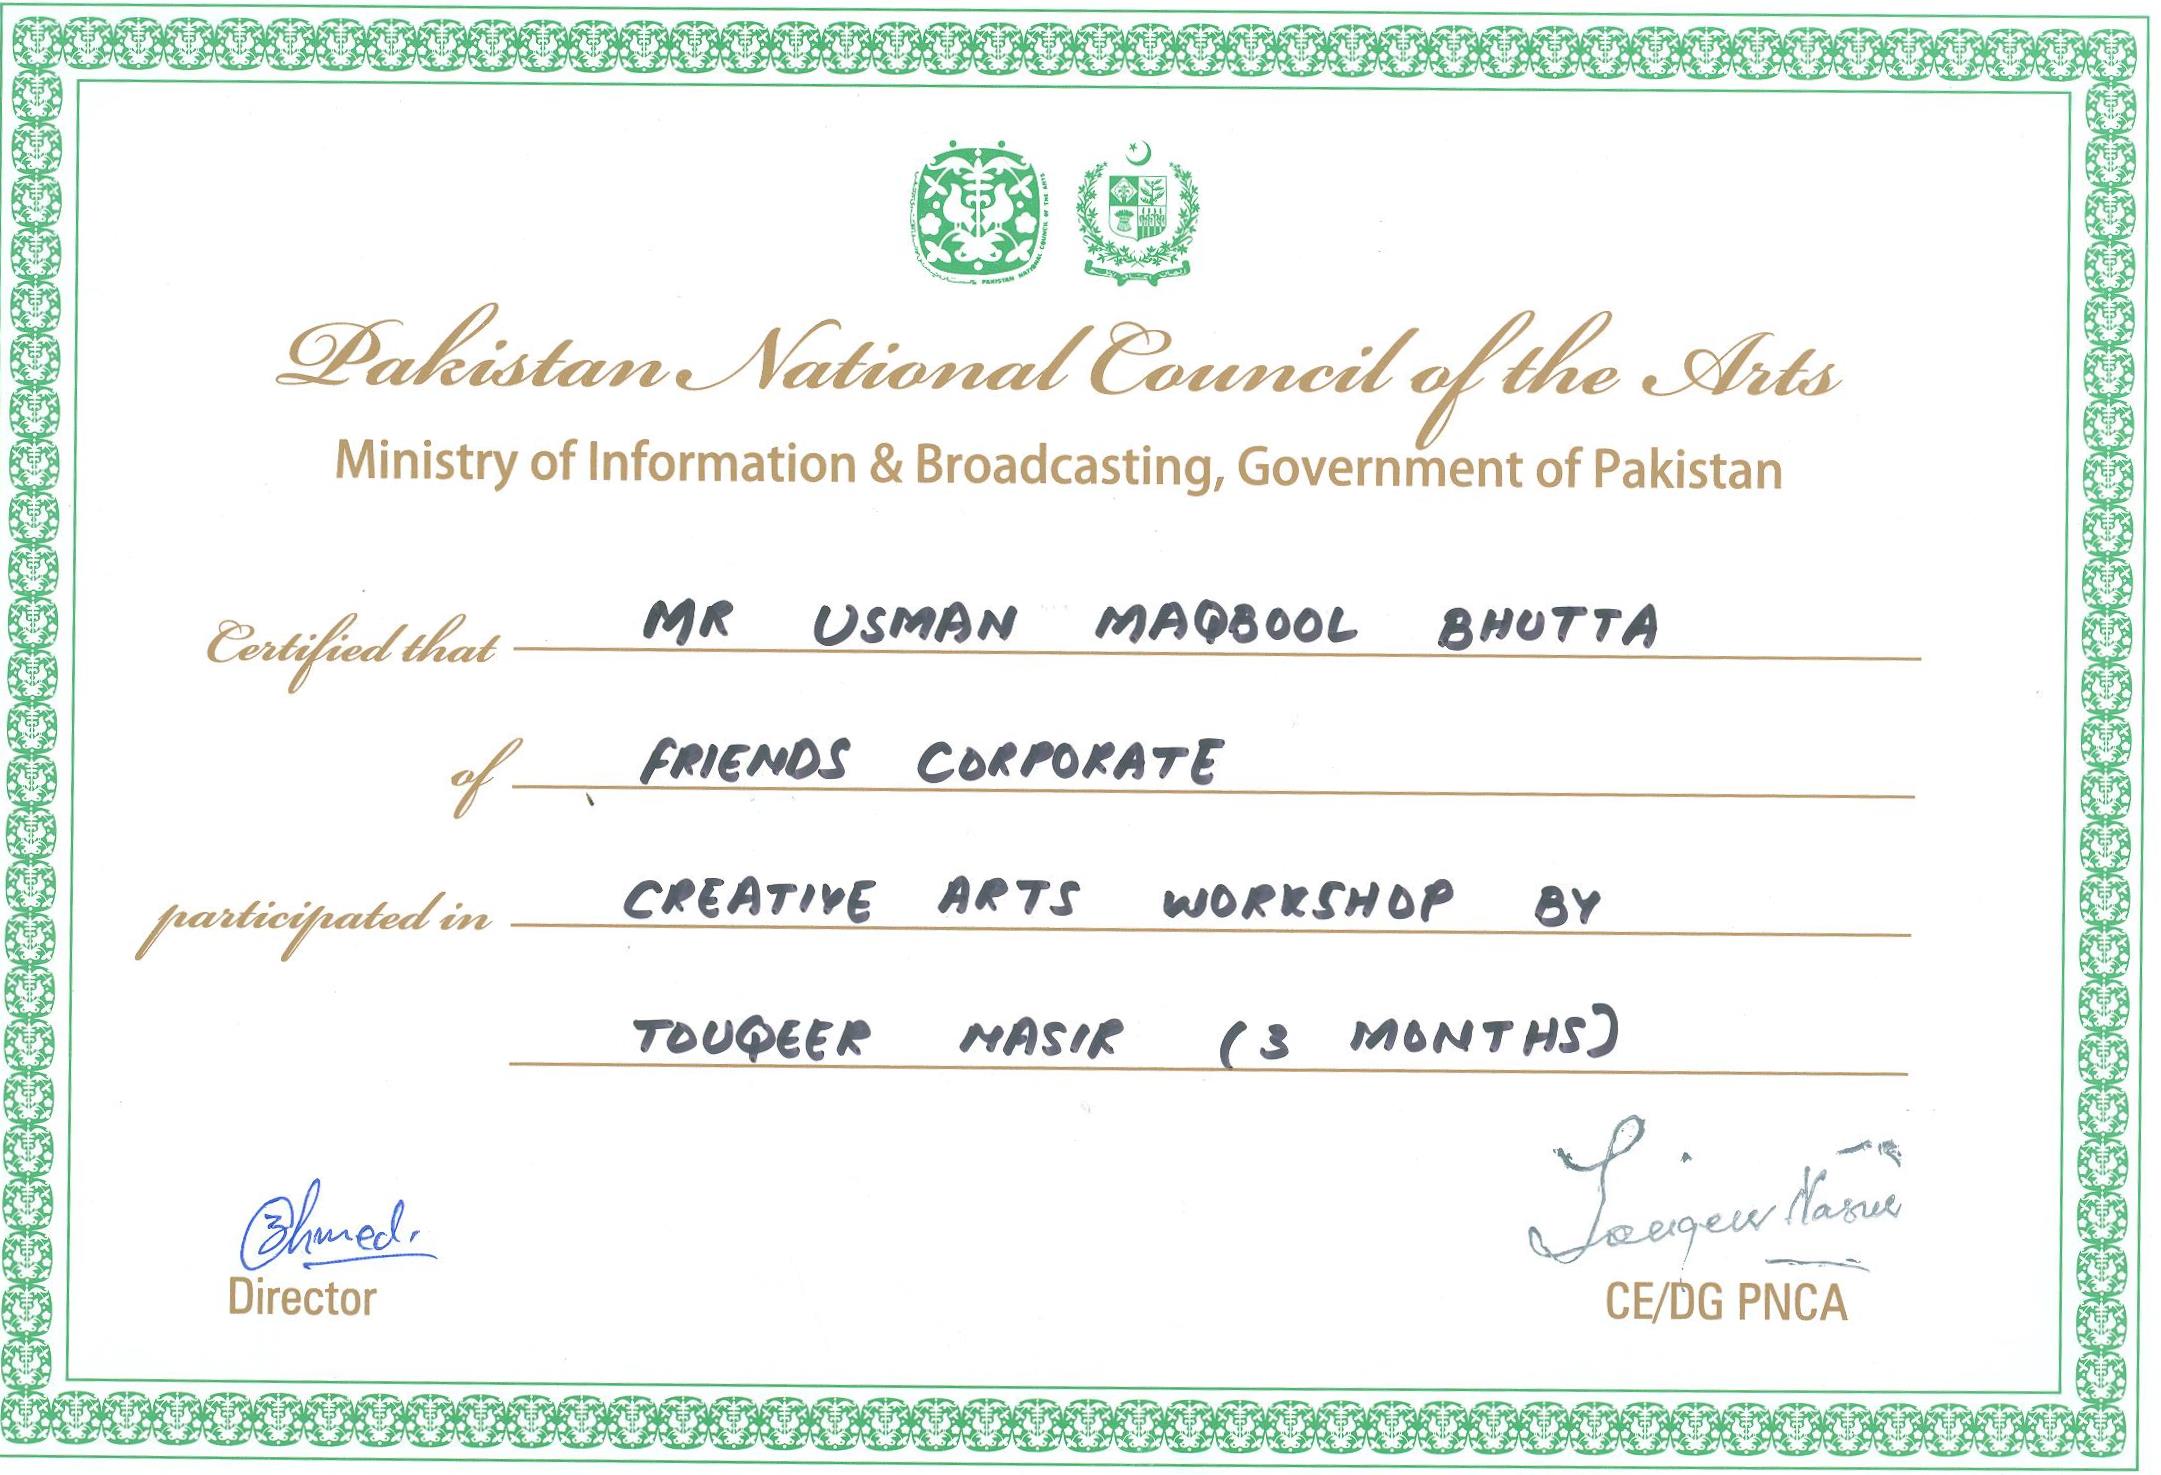 PAKISTAN NATIONAL COUNCIL OF THE ARTS
Pakistan National Council of the Arts
Ministry of Information & Broadcasting, Government of Pakistan
Certified that MR USMAN MAQBOOL BHUTTA
of FRIENDS CORPORATE
participated in CREATIVE ARTS WORKSHOP BY
TOUQEER NASIR (3 MONTHS)
Ahmed.
Touqeer Nasir
Director
CE/DG PNCA